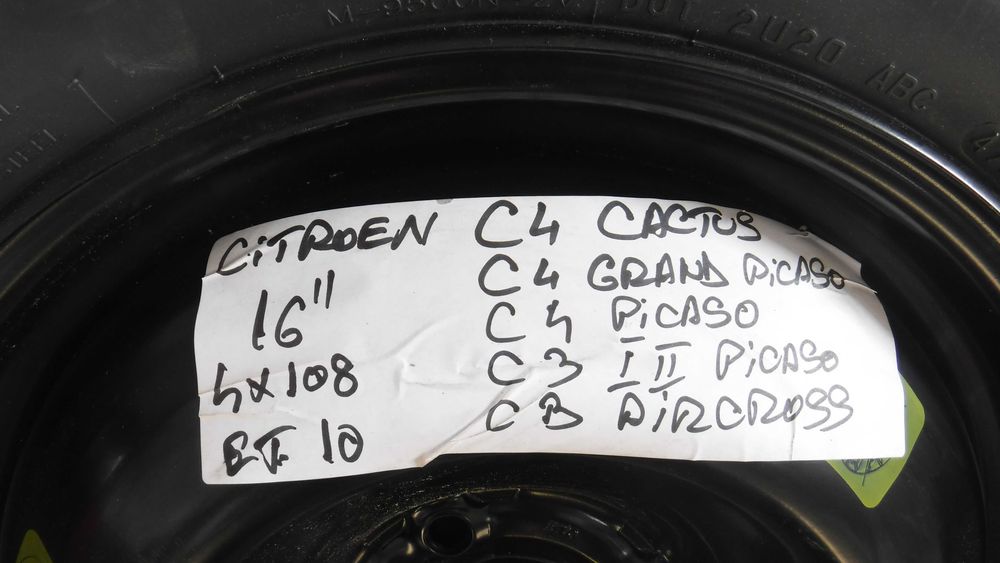 DOT 2U20 ABC
CiTROEN
16"
4x108
ET. 10
C4 CACTUS
C4 GRAND PiCASO
C4 PiCASO
C3 I II PiCASO
C3 AiRCROSS